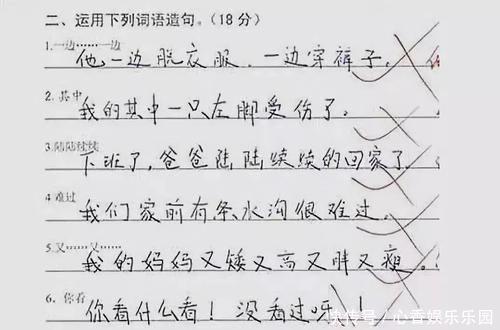 二、运用下列词语造句。(18分)
1.一边……一边
他一边脱衣服,一边穿裤子。
2. 其中
我的其中一只左脚受伤了。
3.陆陆续续
下班了,爸爸陆陆续续的回家了
4.难过
我们家前有条水沟很难过。
5.又……又……
我的妈妈又矮又高又胖又瘦。
6. 你看
你看什么看!没看过呀!
快传号/心香娱乐乐园